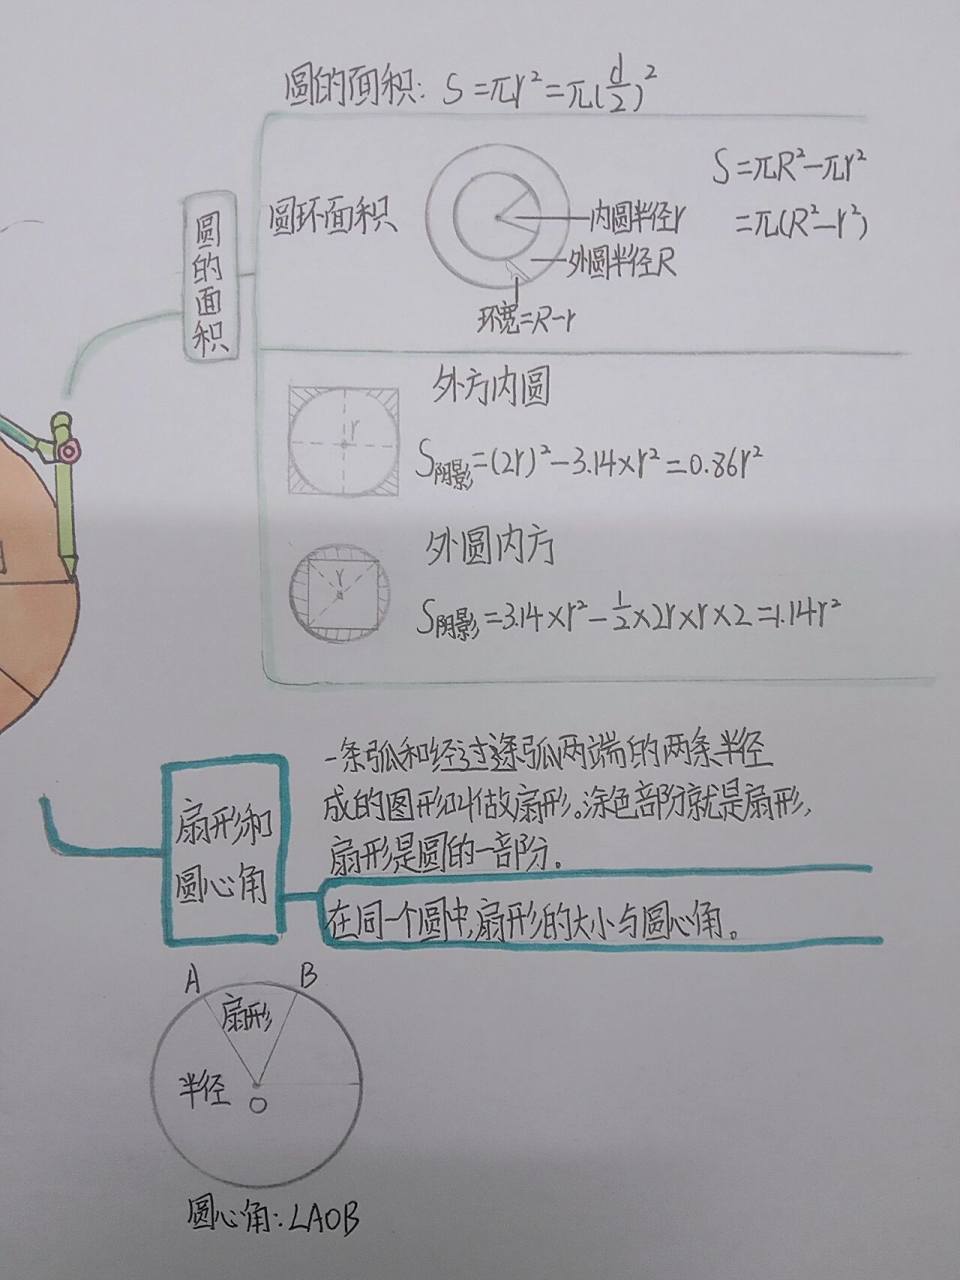 圆的面积: S=πr²=π(d/2)²
圆的面积
圆环面积
内圆半径r
外圆半径R
环宽=R-r
S=πR²-πr²
=π(R²-r²)
外方内圆
r
S阴影=(2r)²-3.14×r²=0.86r²
外圆内方
r
S阴影=3.14×r²-1/2×2r×r×2=1.14r²
扇形和
圆心角
一条弧和经过这条弧两端的两条半径
成的图形叫做扇形。涂色部分就是扇形,
扇形是圆的一部分。
在同一个圆中,扇形的大小与圆心角。
A B
扇形
半径
O
圆心角:∠AOB